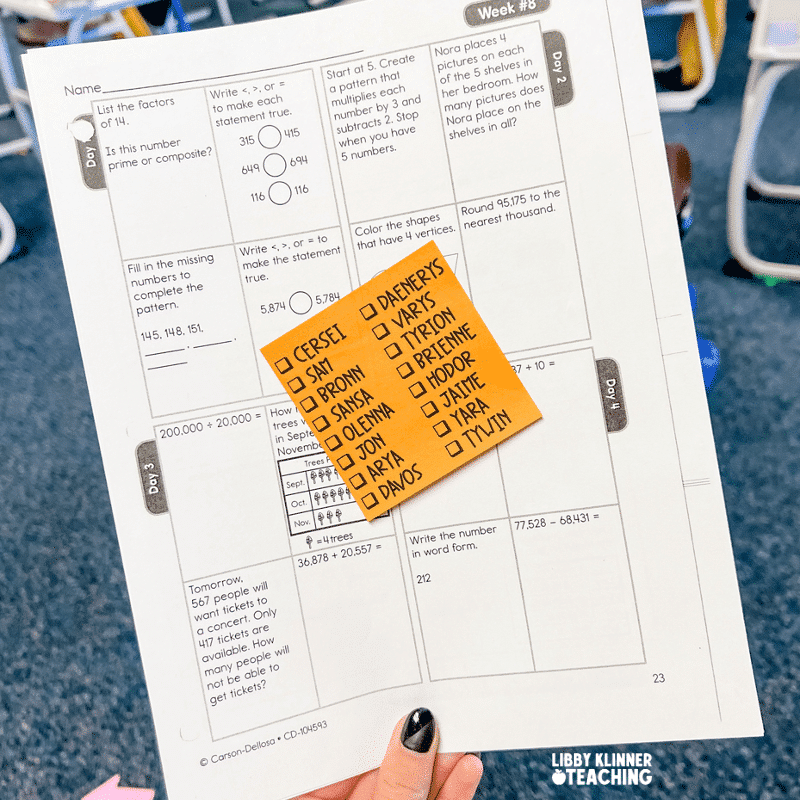 Week #8
Name
Day
List the factors
of 14.
Is this number
prime or composite?
Write <, >, or =
to make each
statement true.
315 415
649 694
116 116
Start at 5. Create
a pattern that
multiplies each
number by 3 and
subtracts 2. Stop
when you have
5 numbers.
Nora places 4
pictures on each
of the 5 shelves in
her bedroom. How
many pictures does
Nora place on the
shelves in all?
Day 2
Fill in the missing
numbers to
complete the
pattern.
145, 148, 151,
_____, _____,
_____
Write <, >, or = to
make the statement
true.
5,874 5,784
Color the shapes
that have 4 vertices.
Round 95,175 to the
nearest thousand.
CERSEI
SAM
BRONN
SANSA
OLENNA
JON
ARYA
DAVOS
DAENERYS
VARYS
TYRION
BRIENNE
HODOR
JAIME
YARA
TYWIN
Day 3
200,000 + 20,000 =
How
trees
in Sept
Novembe
Trees
Sept.
Oct.
Nov.
= 4 trees
37 + 10 =
Day 4
Tomorrow,
567 people will
want tickets to
a concert. Only
417 tickets are
available. How
many people will
not be able to
get tickets?
36,878 + 20,557 =
Write the number
in word form.
212
77,528 – 68,431 =
23
© Carson-Dellosa • CD-104593
LIBBY KLINNER
TEACHING